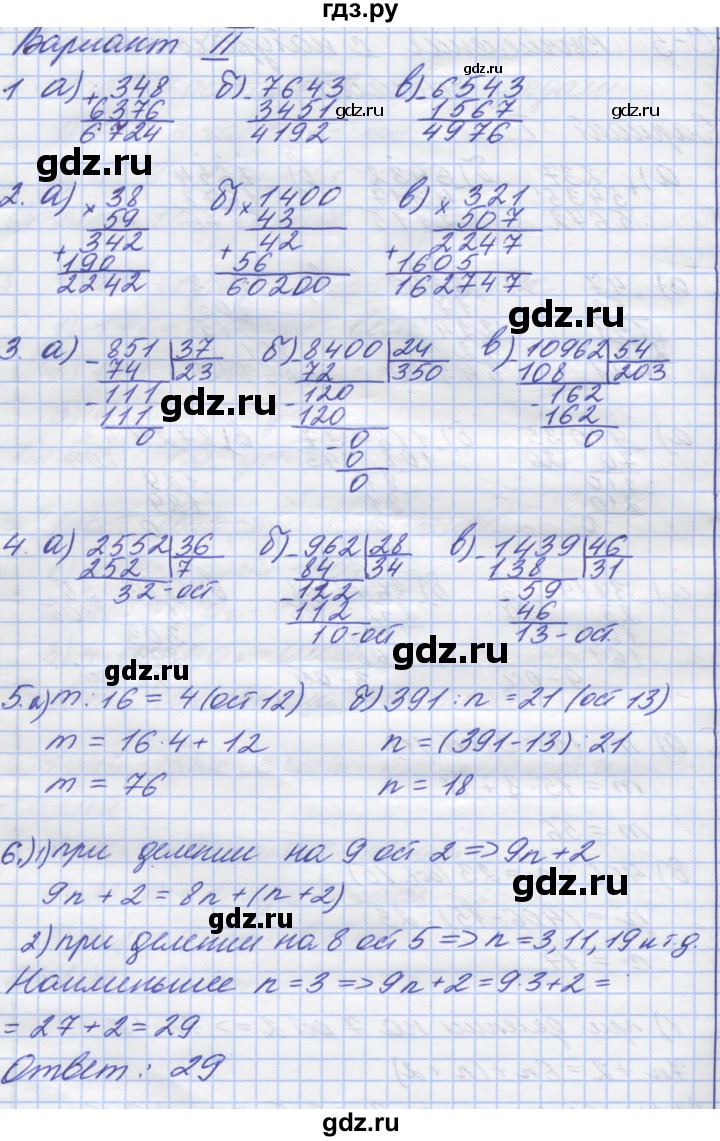 гдз.ру
Вариант II
1 а) + 348 б) - 7643 в) - 6543
6376 3451 1567
6724 4192 4976
gdz.ru
gdz.ru
gdz.ru
2. а) × 38 б) × 1400 в) × 321
59 43 507
342 42 2247
+ 190 + 56 + 1605
2242 60200 162747
gdz.ru
3. а) - 851 37 б) 8400 24 в) - 10962 54
74 23 72 350 108 203
- 111 - 120 - 162
111 120 162
0 - 0 0
0
0
gdz.ru
4. а) 2552 36 б) - 962 28 в) - 1439 46
252 7 84 34 138 31
32 - ост - 122 - 59
112 46
10 - ост 13 - ост.
gdz.ru
gdz.ru
5. а) m : 16 = 4 (ост 12) б) 391 : n = 21 (ост 13)
m = 16·4 + 12 n = (391-13) : 21
m = 76 n = 18
6.) 1) при делении на 9 ост 2 => 9n + 2
9n + 2 = 8n + (n + 2)
gdz.ru
gdz.ru
2) при делении на 8 ост 5 => n = 3, 11, 19 и т.д.
Наименьшее n = 3 => 9n + 2 = 9·3 + 2 =
= 27 + 2 = 29
Ответ: 29
gdz.ru
gdz.ru
gdz.ru